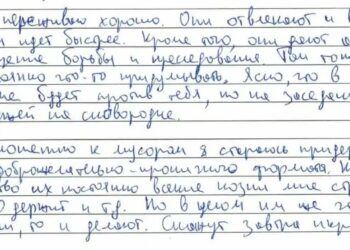 переживаю хорошо. Они отвлекают и в
и идёт быстрее. Кроме того, они дают о
щение борьбы и преследования. Там тож
оянно что-то придумывать. Ясно, что в
не будет против тебя, но на заседан
щей на сковородке.
ношению к мусорам я стараюсь придер
доброжелательно-ироничного формата. К
тво их постоянно всякие козни мне ст
О держит и т.д. Но в целом им не
м, то и делают. Скажут завтра